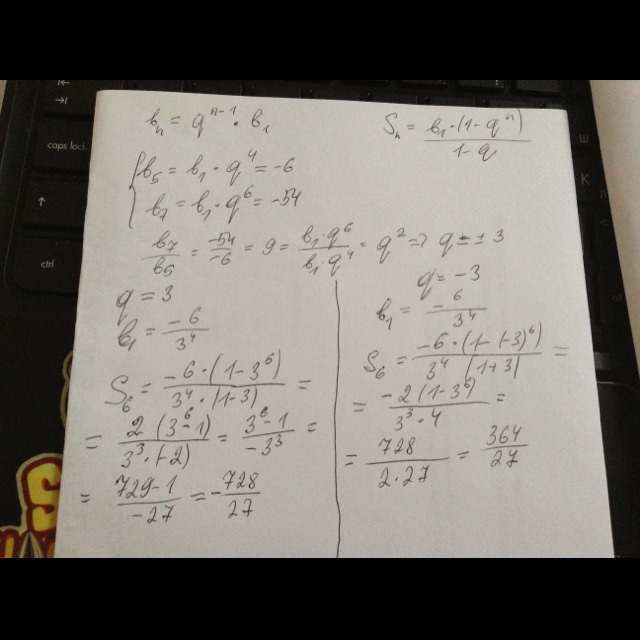 caps lock
ctrl
bₙ = qⁿ⁻¹ · b₁
Sₙ = b₁·(1-qⁿ) / 1-q
{ b₅ = b₁ · q⁴ = -6
b₇ = b₁ · q⁶ = -54
b₇/b₅ = -54/-6 = 9 = b₁·q⁶ / b₁·q⁴ = q² => q = ± 3
q = 3
b₁ = -6/3⁴
S₆ = -6·(1-3⁶) / 3⁴·(1-3) =
= 2(3⁶-1) / 3³·(-2) = 3⁶-1 / -3³ =
= 729-1 / -27 = -728/27
q = -3
b₁ = -6/3⁴
S₆ = -6·(1-(-3)⁶) / 3⁴ (1+3) =
= -2(1-3⁶) / 3³·4 =
= 728 / 2·27 = 364/27